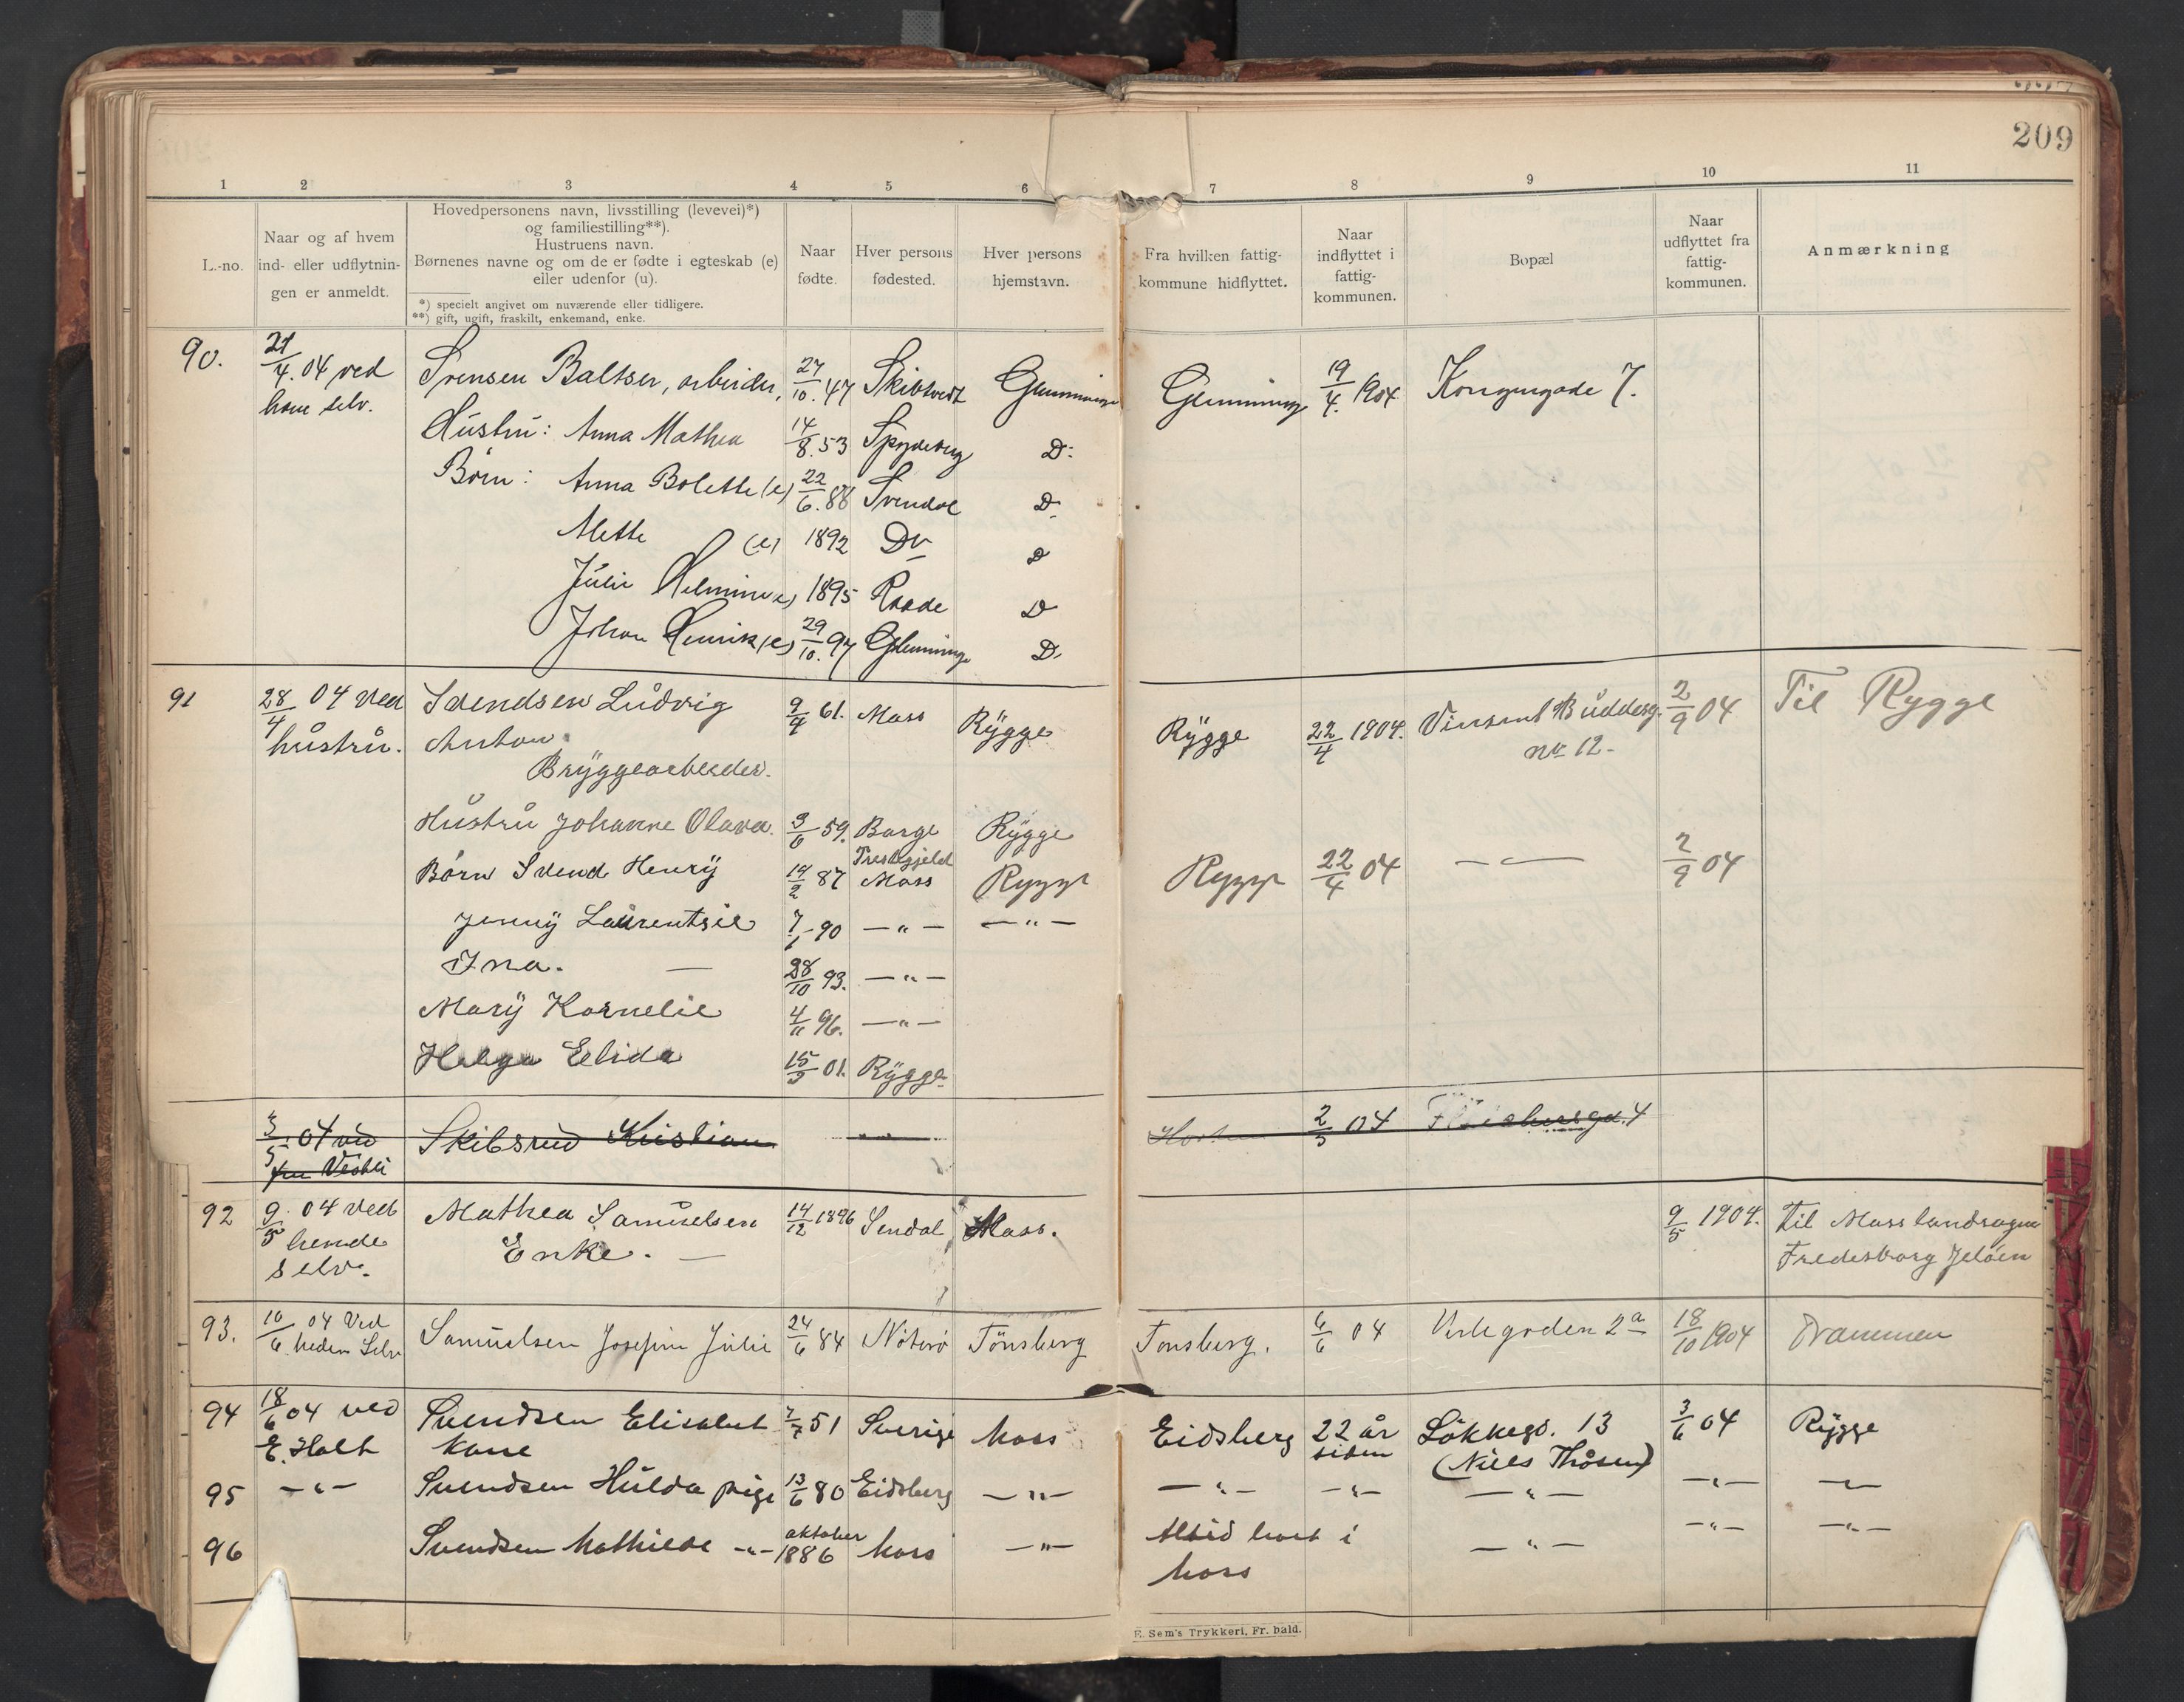 209
1 2 3 4 5 6 7 8 9 10 11
L.-no.
Naar og af hvem
ind- eller udflytnin-
gen er anmeldt.
Hovedpersonens navn, livsstilling (levevei)*)
og familiestilling**).
Hustruens navn.
Børnenes navne og om de er fødte i egteskab (e)
eller udenfor (u).
*) specielt angivet om nuværende eller tidligere.
**) gift, ugift, fraskilt, enkemand, enke.
Naar
fødte.
Hver persons
fødested.
Hver persons
hjemstavn.
Fra hvilken fattig-
kommune hidflyttet.
Naar
indflyttet i
fattig-
kommunen.
Bopæl
Naar
udflyttet fra
fattig-
kommunen.
Anmærkning
90. 21/4. 04 ved Svensen Baltser, arbeider, 27/10. 47 Skibtvedt Glemminge Glemminge 19/4. 1904 Kongensgade 7.
ham selv.
Hustru: Anna Mathea 14/8. 53 Spydeberg D:
Børn: Anna Bolette (e) 22/6. 88 Svendal D
Mette (e) 1892 Do D
Julie Helmine (e) 1895 Raade D
Johan Henrik (e) 29/10. 97 Glemminge D.
91 28/4 04 Ved Svendsen Ludvig 9/4 61. Moss Rygge Rygge 22/4 1904. Vinsent Buddesg. 2/9 04 Til Rygge
hustru. Anton. nr 12.-
Bryggearbeider.
Hustru Johanne Olava. 3/6 59. Borge Rygge
Børn Svend Henry 14/2 87 Prestegjeld Moss Rygge Rygge 22/4 04 — 2/9 04
Jenny Laurentsie 7/1 - 90 —"— —"—
Ina. — 28/10 93. —"—
Mary Kornelie 4/11 96. —"—
Helga Elida 15/3 01. Rygge.
3/5. 04 ved Skibsrud Kristian —"— 2/5 04 4
92 9/5. 04 ved Mathea Samuelsen 14/12 1896 Sendal Moss. 9/5 1904. Til Moss landsogn
hende Enke. — Fredesborg Jeløen
selv.
93. 10/6 04 Ved Samuelsen Josefine Julie 24/6 84 Nøterø Tønsberg Tønsberg. 6/6 04 Verkgaden 2a 18/10 1904 Drammen
heden Selv
94 18/6 04 ved Svendsen Elisabet 7/7 51 Sverige Moss Eidsberg 22 år Løkkegd. 13 3/6 04 Rygge
E. Holt kone siden (Niels Thåsen)
95 —"— Svendsen Hulda pige 13/6 80 Eidsberg —"— —"— —"— —"— —"— —"—
96 Svendsen Mathilde —"— oktober 1886 Moss —"— Altid boet i —"— —"— —"—
Moss
E. Sem's Trykkeri, Fr. hald.